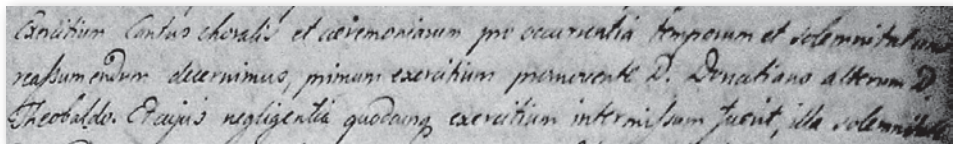 Exercitium Cantus choralis et cæremoniarum pro occurrentia temporum et solemnitatum
reassumendum decernimus, primum exercitium promovente D. Donatiano alterum D.
Theobaldo. Et cujus negligentia quodcunq exercitium intermissum fuerit, illa solemnitate